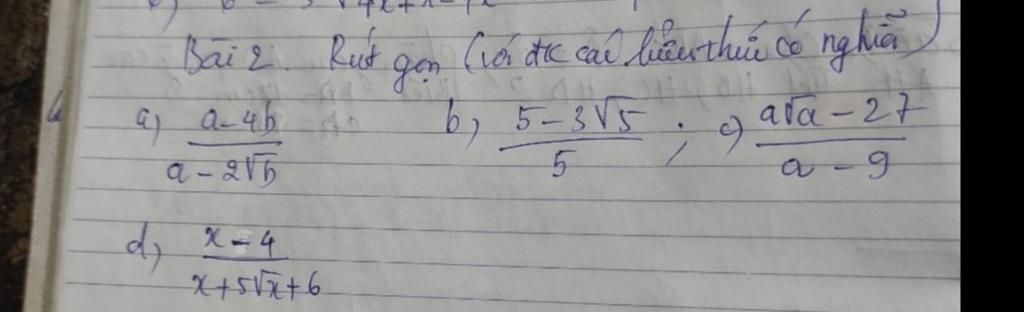 Bài 2. Rút gọn (với đk các biểu thức có nghĩa)
a) \frac{a-4b}{a-2\sqrt{b}} b) \frac{5-3\sqrt{5}}{5} ; c) \frac{a\sqrt{a}-27}{a-9}
d) \frac{x-4}{x+5\sqrt{x}+6}